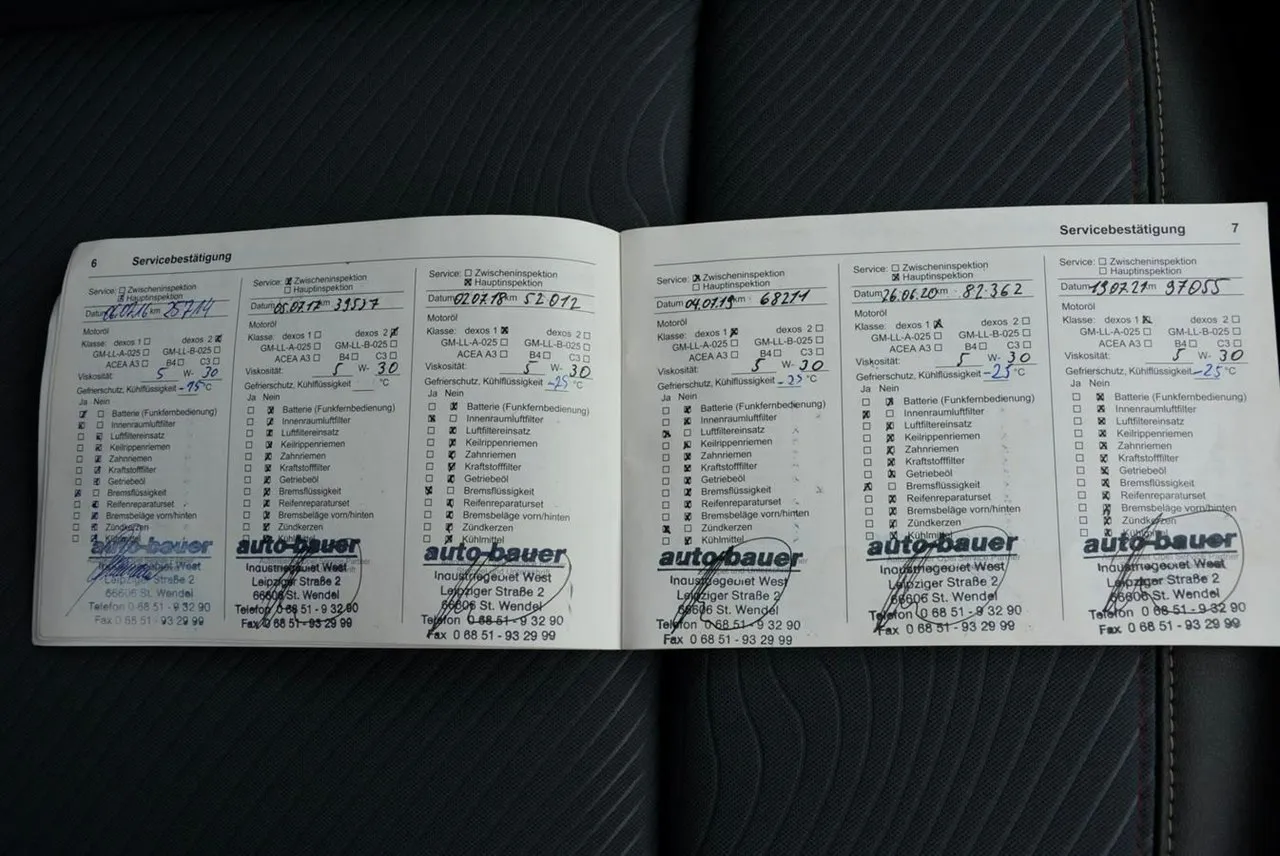 6 Servicebestätigung
Service: ☐ Zwischeninspektion
☒ Hauptinspektion
Datum 06.07.16 km 25714
Motoröl
Klasse: dexos 1 ☐ dexos 2 ☒
GM-LL-A-025 ☐ GM-LL-B-025 ☐
ACEA A3 ☐ B4 ☐ C3 ☐
Viskosität: 5 W- 30
Gefrierschutz, Kühlflüssigkeit -15 °C
Ja Nein
☒ ☐ Batterie (Funkfernbedienung)
☒ ☐ Innenraumluftfilter
☐ ☒ Luftfiltereinsatz
☐ ☒ Keilrippenriemen
☐ ☒ Zahnriemen
☐ ☒ Kraftstofffilter
☐ ☒ Getriebeöl
☒ ☐ Bremsflüssigkeit
☐ ☒ Reifenreparaturset
☐ ☒ Bremsbeläge vorn/hinten
☐ ☒ Zündkerzen
☐ ☒ Kühlmittel
auto-bauer
Industriegebiet West
Leipziger Straße 2
66606 St. Wendel
Telefon 0 68 51 - 9 32 90
Fax 0 68 51 - 93 29 99
Service: ☒ Zwischeninspektion
☐ Hauptinspektion
Datum 05.07.17 km 39537
Motoröl
Klasse: dexos 1 ☐ dexos 2 ☒
GM-LL-A-025 ☐ GM-LL-B-025 ☐
ACEA A3 ☐ B4 ☐ C3 ☐
Viskosität: 5 W- 30
Gefrierschutz, Kühlflüssigkeit °C
Ja Nein
☐ ☒ Batterie (Funkfernbedienung)
☐ ☒ Innenraumluftfilter
☐ ☒ Luftfiltereinsatz
☐ ☒ Keilrippenriemen
☐ ☒ Zahnriemen
☐ ☒ Kraftstofffilter
☐ ☒ Getriebeöl
☐ ☒ Bremsflüssigkeit
☐ ☒ Reifenreparaturset
☐ ☒ Bremsbeläge vorn/hinten
☐ ☒ Zündkerzen
☐ ☒ Kühlmittel
auto-bauer
Industriegebiet West
Leipziger Straße 2
66606 St. Wendel
Telefon 0 68 51 - 9 32 90
Fax 0 68 51 - 93 29 99
Service: ☐ Zwischeninspektion
☒ Hauptinspektion
Datum 02.07.18 km 52012
Motoröl
Klasse: dexos 1 ☒ dexos 2 ☐
GM-LL-A-025 ☐ GM-LL-B-025 ☐
ACEA A3 ☐ B4 ☐ C3 ☐
Viskosität: 5 W- 30
Gefrierschutz, Kühlflüssigkeit -25 °C
Ja Nein
☐ ☒ Batterie (Funkfernbedienung)
☒ ☐ Innenraumluftfilter
☐ ☒ Luftfiltereinsatz
☐ ☒ Keilrippenriemen
☐ ☒ Zahnriemen
☐ ☒ Kraftstofffilter
☐ ☒ Getriebeöl
☒ ☐ Bremsflüssigkeit
☐ ☒ Reifenreparaturset
☐ ☒ Bremsbeläge vorn/hinten
☐ ☒ Zündkerzen
☐ ☒ Kühlmittel
auto-bauer
Industriegebiet West
Leipziger Straße 2
66606 St. Wendel
Telefon 0 68 51 - 9 32 90
Fax 0 68 51 - 93 29 99
Servicebestätigung 7
Service: ☒ Zwischeninspektion
☐ Hauptinspektion
Datum 04.07.19 km 68211
Motoröl
Klasse: dexos 1 ☒ dexos 2 ☐
GM-LL-A-025 ☐ GM-LL-B-025 ☐
ACEA A3 ☐ B4 ☐ C3 ☐
Viskosität: 5 W- 30
Gefrierschutz, Kühlflüssigkeit -25 °C
Ja Nein
☐ ☒ Batterie (Funkfernbedienung)
☐ ☒ Innenraumluftfilter
☒ ☐ Luftfiltereinsatz
☐ ☒ Keilrippenriemen
☐ ☒ Zahnriemen
☐ ☒ Kraftstofffilter
☐ ☒ Getriebeöl
☐ ☒ Bremsflüssigkeit
☐ ☒ Reifenreparaturset
☐ ☒ Bremsbeläge vorn/hinten
☒ ☐ Zündkerzen
☐ ☒ Kühlmittel
auto-bauer
Industriegebiet West
Leipziger Straße 2
66606 St. Wendel
Telefon 0 68 51 - 9 32 90
Fax 0 68 51 - 93 29 99
Service: ☐ Zwischeninspektion
☒ Hauptinspektion
Datum 26.06.20 km 82362
Motoröl
Klasse: dexos 1 ☒ dexos 2 ☐
GM-LL-A-025 ☐ GM-LL-B-025 ☐
ACEA A3 ☐ B4 ☐ C3 ☐
Viskosität: 5 W- 30
Gefrierschutz, Kühlflüssigkeit -25 °C
Ja Nein
☐ ☒ Batterie (Funkfernbedienung)
☒ ☐ Innenraumluftfilter
☐ ☒ Luftfiltereinsatz
☐ ☒ Keilrippenriemen
☐ ☒ Zahnriemen
☐ ☒ Kraftstofffilter
☐ ☒ Getriebeöl
☒ ☐ Bremsflüssigkeit
☐ ☒ Reifenreparaturset
☐ ☒ Bremsbeläge vorn/hinten
☐ ☒ Zündkerzen
☐ ☒ Kühlmittel
auto-bauer
Industriegebiet West
Leipziger Straße 2
66606 St. Wendel
Telefon 0 68 51 - 9 32 90
Fax 0 68 51 - 93 29 99
Service: ☐ Zwischeninspektion
☐ Hauptinspektion
Datum 19.07.21 km 97055
Motoröl
Klasse: dexos 1 ☒ dexos 2 ☐
GM-LL-A-025 ☐ GM-LL-B-025 ☐
ACEA A3 ☐ B4 ☐ C3 ☐
Viskosität: 5 W- 30
Gefrierschutz, Kühlflüssigkeit -25 °C
Ja Nein
☐ ☒ Batterie (Funkfernbedienung)
☐ ☒ Innenraumluftfilter
☐ ☒ Luftfiltereinsatz
☐ ☒ Keilrippenriemen
☐ ☒ Zahnriemen
☐ ☒ Kraftstofffilter
☐ ☒ Getriebeöl
☐ ☒ Bremsflüssigkeit
☐ ☒ Reifenreparaturset
☐ ☒ Bremsbeläge vorn/hinten
☐ ☒ Zündkerzen
☐ ☒ Kühlmittel
auto-bauer
Industriegebiet West
Leipziger Straße 2
66606 St. Wendel
Telefon 0 68 51 - 9 32 90
Fax 0 68 51 - 93 29 99